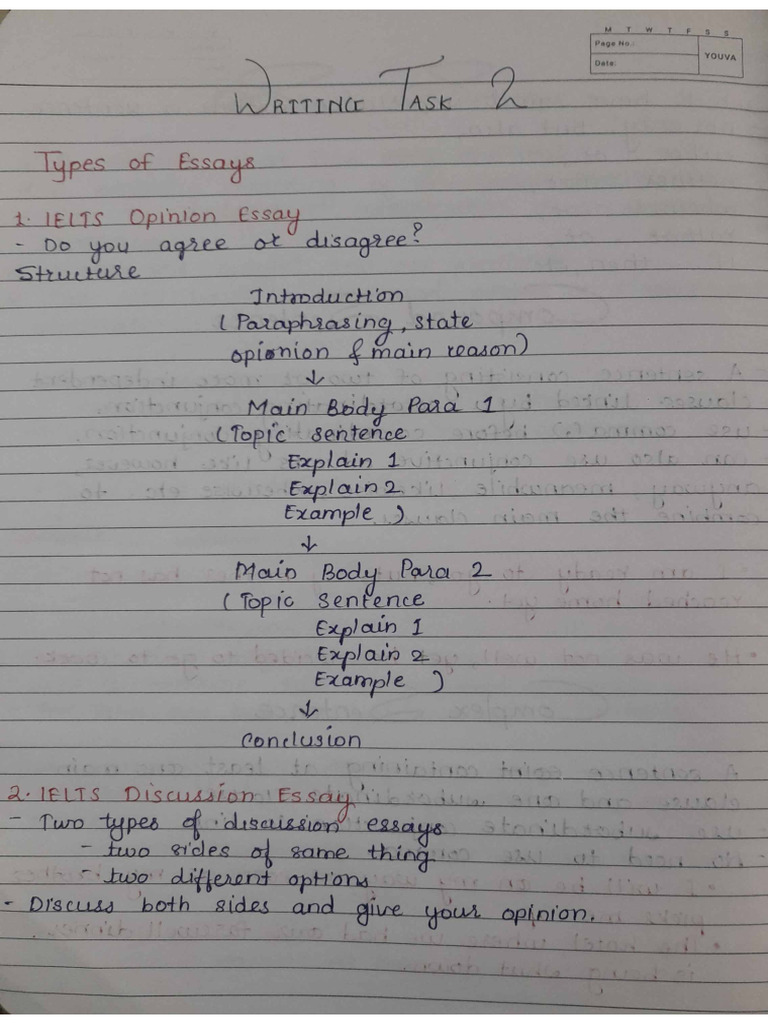 M T W T F S S
Page No.:
Date:
YOUVA
WRITING TASK 2
Types of Essays
1. IELTS Opinion Essay
- Do you agree or disagree?
Structure
Introduction
(Paraphrasing, state
opionion & main reason)
↓
Main Body Para 1
(Topic sentence
Explain 1
Explain 2
Example )
↓
Main Body Para 2
(Topic sentence
Explain 1
Explain 2
Example )
↓
Conclusion
2. IELTS Discussion Essay
- Two types of discussion essays
- two sides of same thing
- two different options
- Discuss both sides and give your opinion.